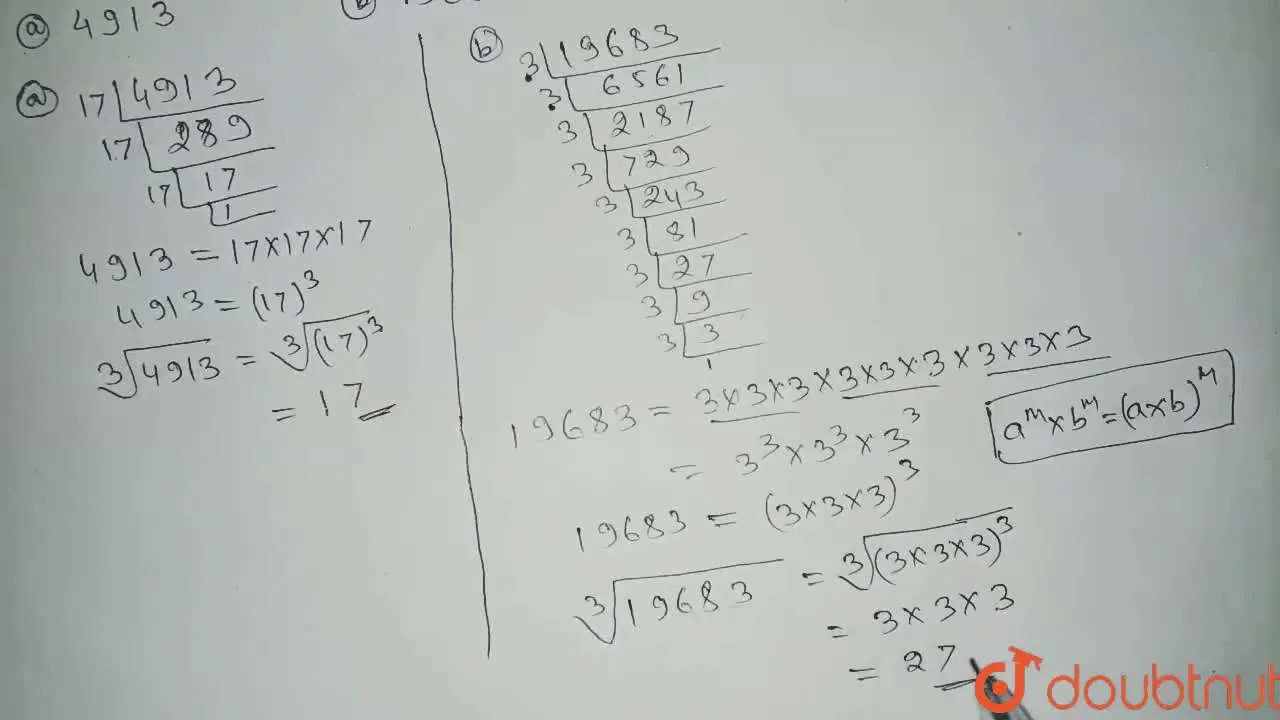 ⓐ 4913
ⓐ 17 | 4913
17 | 289
17 | 17
1
4913 = 17×17×17
4913 = (17)³
∛4913 = ∛(17)³
= 17
ⓑ 3 | 19683
3 | 6561
3 | 2187
3 | 729
3 | 243
3 | 81
3 | 27
3 | 9
3 | 3
1
19683 = 3×3×3×3×3×3×3×3×3
= 3³×3³×3³
aᵐ×bᵐ=(a×b)ᵐ
19683 = (3×3×3)³
∛19683 = ∛(3×3×3)³
= 3×3×3
= 27
doubtnut